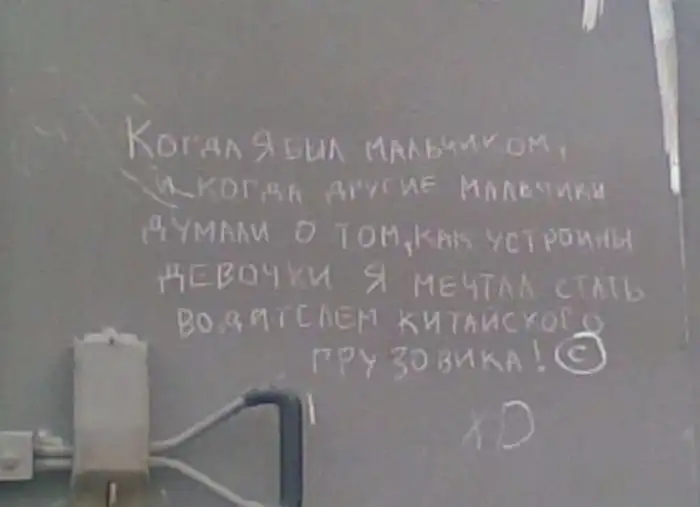 Когда я был мальчиком,
и когда другие мальчики
думали о том, как устроины
девочки я мечтал стать
водителем китайского
грузовика! ©
xD